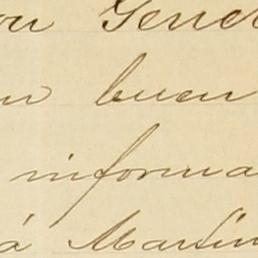 ou Gener
un buen
informa
á Martin